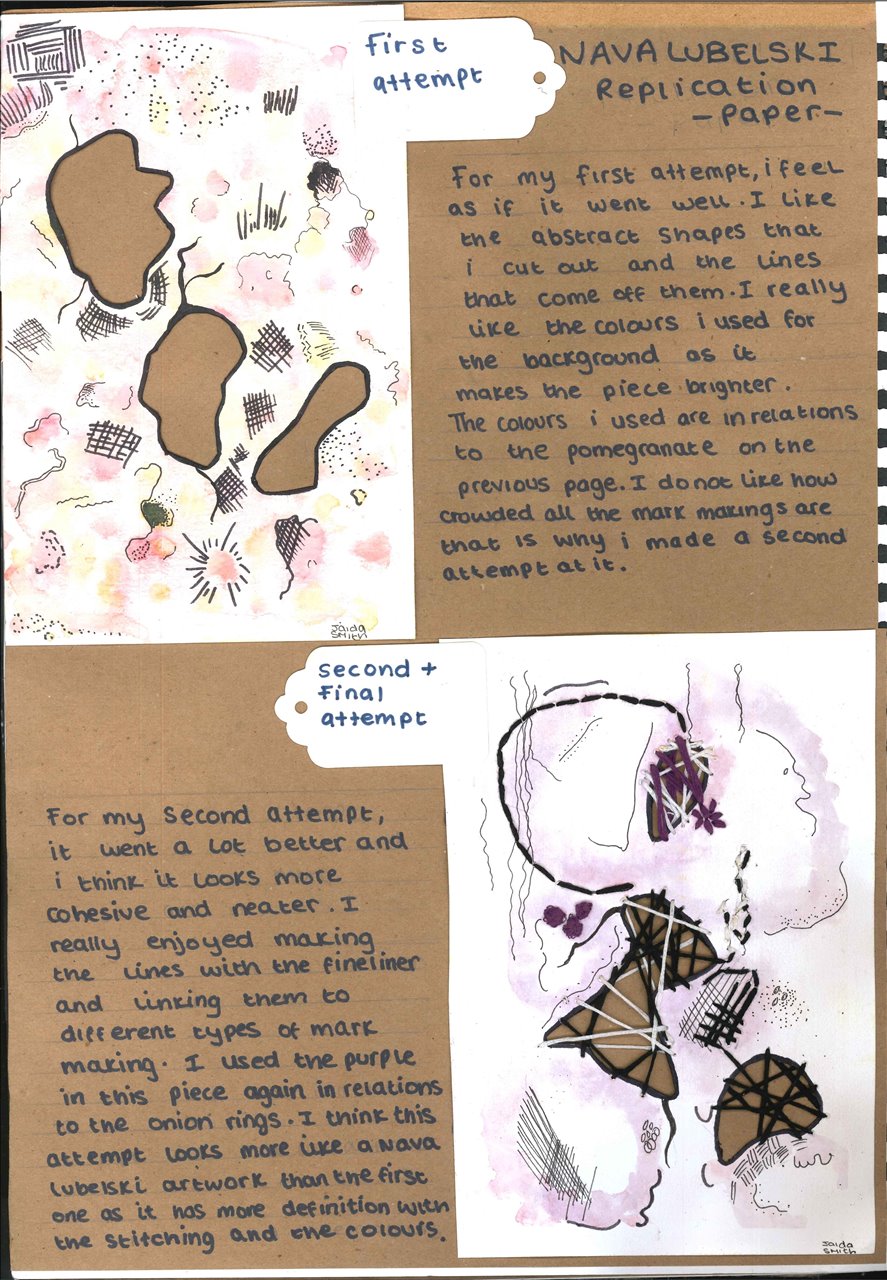 First
attempt
NAVA LUBELSKI
Replication
-Paper-
For my first attempt, i feel
as if it went well. I like
the abstract shapes that
i cut out and the lines
that come off them. I really
like the colours i used for
the background as it
makes the piece brighter.
The colours i used are in relations
to the pomegranate on the
previous page. I do not like how
crowded all the mark makings are
that is why i made a second
attempt at it.
Jaida
Smith
Second +
Final
attempt
For my second attempt,
it went a lot better and
i think it looks more
cohesive and neater. I
really enjoyed making
the lines with the fineliner
and linking them to
different types of mark
making. I used the purple
in this piece again in relations
to the onion rings. I think this
attempt looks more like a Nava
Lubelski artwork than the first
one as it has more definition with
the stitching and the colours.
Jaida
Smith